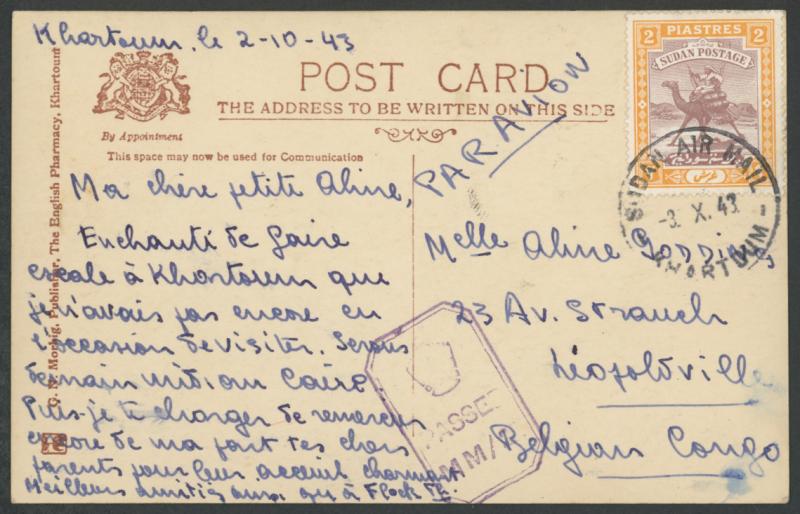 Khartoum, le 2-10-43
POST CARD
THE ADDRESS TO BE WRITTEN ON THIS SIDE
By Appointment
This space may now be used for Communication
Publisher, The English Pharmacy, Khartoum
PAR AVION
2 PIASTRES 2
SUDAN POSTAGE
SUDAN AIR MAIL
-3 X. 43
KHARTOUM
Ma chère petite Aline,
Enchanté de faire
escale à Khartoum que
je n'avais pas encore eu
l'occasion de visiter. Serons
demain midi au Caire.
Puis-je te charger de remercier
encore de ma part tes chers
parents pour leur accueil charmant
Meilleurs amitiés aussi
Melle Aline
23 Av. Strauch
Léopoldville
Belgian Congo
PASSED
MM/